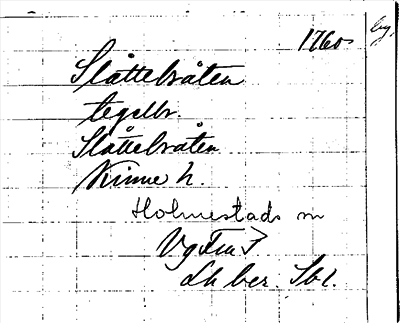 1760 bg.
Slåttebråten
tegelbr.
Slåttebråten
Kinne h.
Holmestads sn
Vg
Lh ber. Sbl.